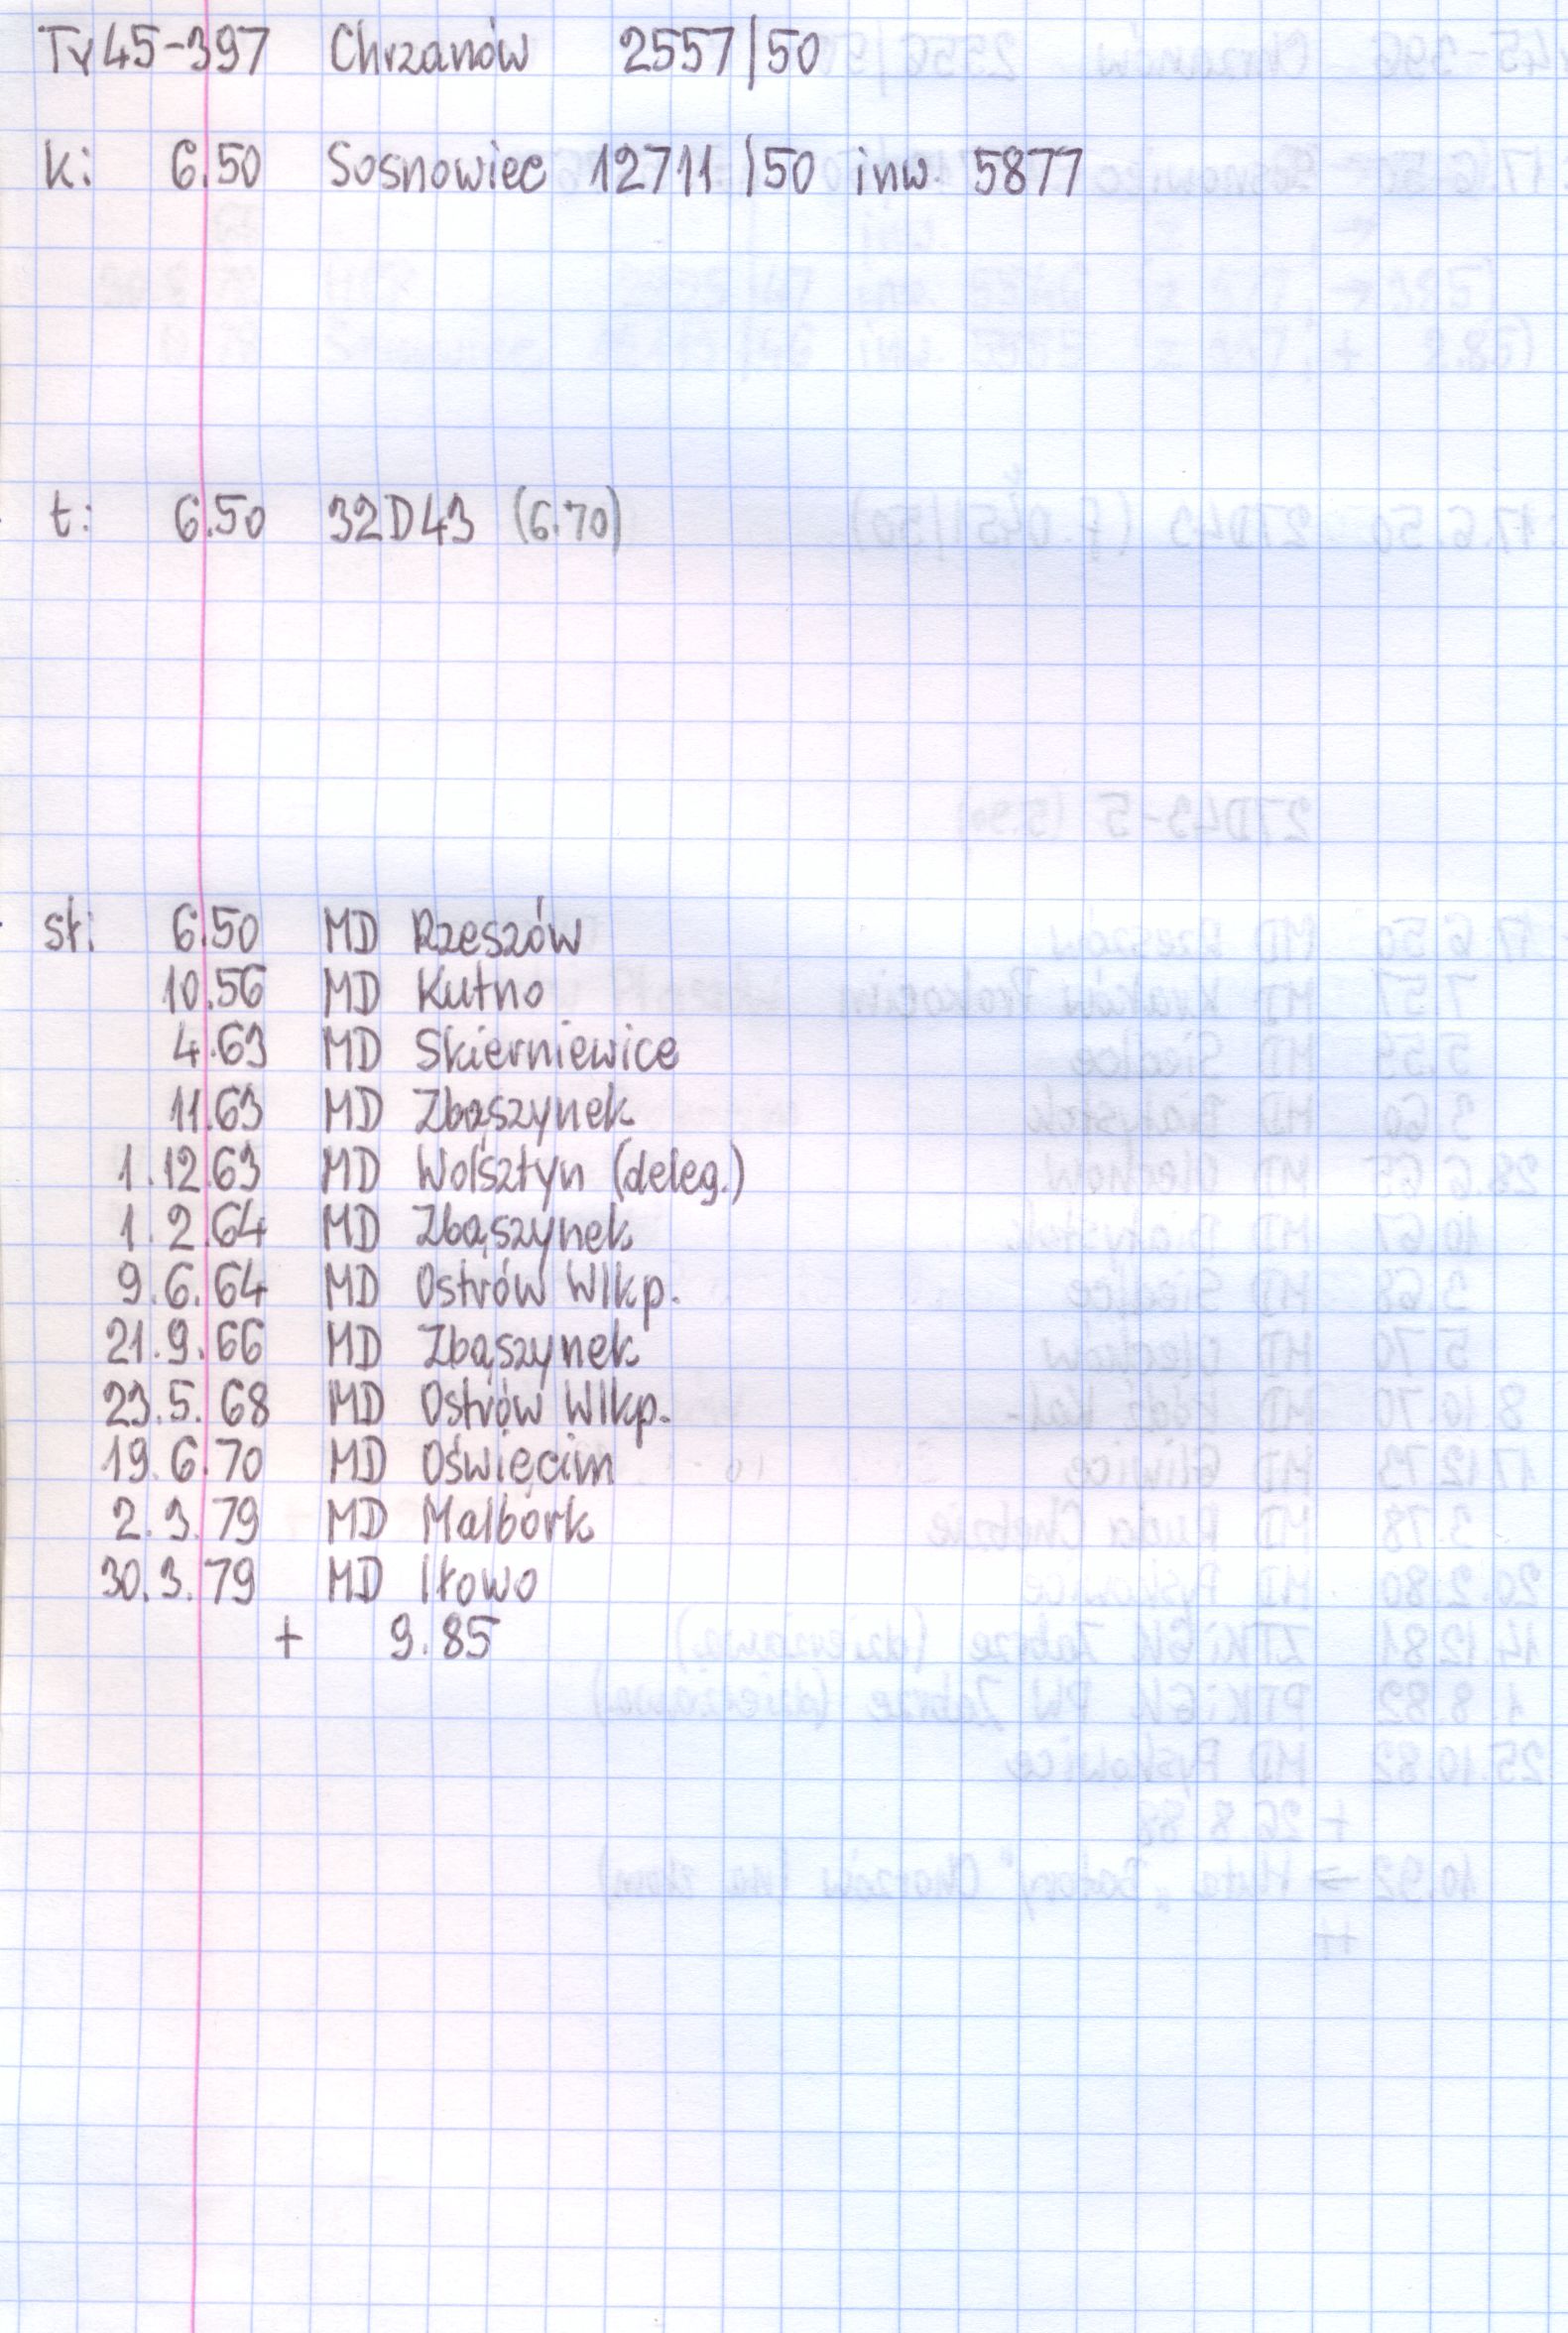 Ty45-397 Chrzanów 2557/50
k: 6.50 Sosnowiec 12711/50 inw. 5877
t: 6.50 32D43 (6.70)
st: 6.50 MD Rzeszów
10.56 MD Kutno
4.63 MD Skierniewice
11.63 MD Zbąszynek
1.12.63 MD Wolsztyn (deleg.)
1.2.64 MD Zbąszynek
9.6.64 MD Ostrów Wlkp.
21.9.66 MD Zbąszynek
23.5.68 MD Ostrów Wlkp.
19.6.70 MD Oświęcim
2.3.79 MD Malbork
30.3.79 MD Iłowo
+ 9.85